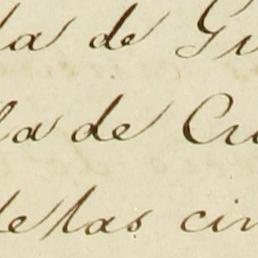 la de Gu
la de Cu
de las cin